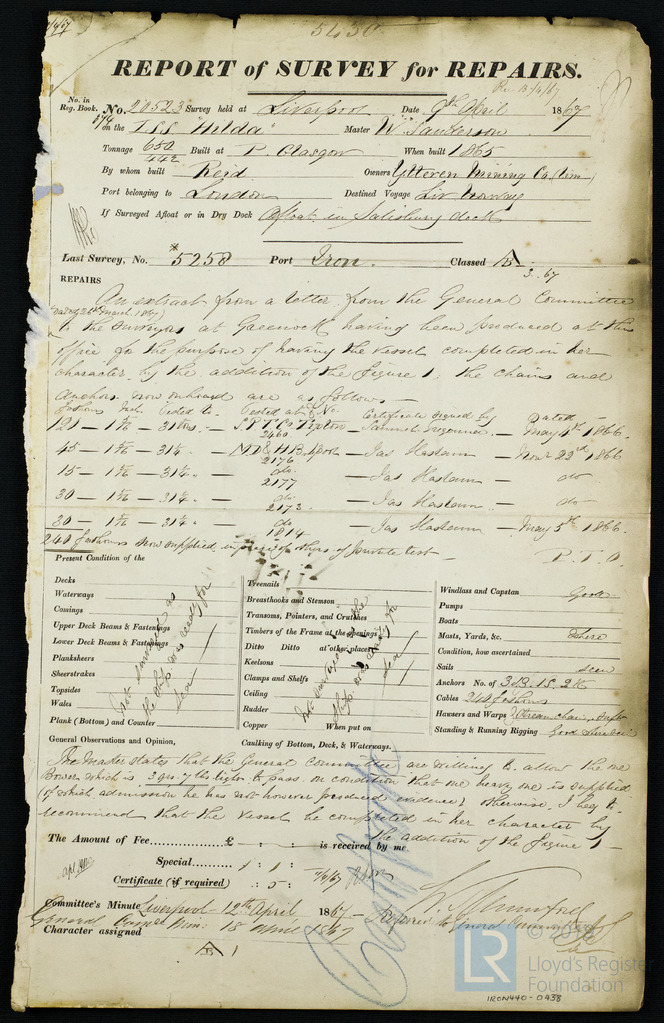 5430
REPORT of SURVEY for REPAIRS.
No. in Reg. Book. No. 20523 Survey held at Liverpool Date 9th April 1867
on the I.S.S "Hilda" Master W. Sanderson
Tonnage 650 Built at P. Glasgow When built 1865
442
By whom built Reid Owners Ytteren Mining Co. (Lim)
Port belonging to London Destined Voyage Norway
If Surveyed Afloat or in Dry Dock Afloat in Salisbury dock
Last Survey, No. 5258 Port Iron. Classed A
3.67
REPAIRS
An extract from a letter from the General Committee
(dated 26th March 1867)
to the Surveyors at Greenock having been produced at this
office for the purpose of having the vessel completed in her
character by the addition of the figure 1; the chains and
anchors now onboard are as follows
Certificate signed by Dated
120 — S.P.T. Co Tipton — May 4th 1866.
2460
45 — M.D & H.B. Lpool — Jas Haslam — Novr 22nd 1866
2176
15 — do — Jas Haslam — do
2177
30 — do — Jas Haslam — do
2173
30 — do — Jas Haslam — May 5th 1866.
1814
240 fathoms now supplied in place of others of private test — P.T.O.
Present Condition of the
Decks
Waterways
Comings
Upper Deck Beams & Fastenings
Lower Deck Beams & Fastenings
Planksheers
Sheerstrakes
Topsides
Wales
Plank (Bottom) and Counter
not surveyed as the ship was ready for sea
Treenails
Breasthooks and Stemson
Transoms, Pointers, and Crutches
Timbers of the Frame at the openings
Ditto Ditto at other places
Keelsons
Clamps and Shelfs
Ceiling
Rudder
Copper When put on
not surveyed as the ship was ready for sea
Windlass and Capstan Good
Pumps
Boats
Masts, Yards, &c. there
Condition, how ascertained
Sails seen
Anchors No. of 3.B. 1S. 2K
Cables 240 fathoms
Hawsers and Warps Stream chain,
Standing & Running Rigging Good
General Observations and Opinion, Caulking of Bottom, Deck, & Waterways.
The Master states that the General Committee are willing to allow the one
Bower which is 3 qrs. 7 lbs light to pass on condition that one heavy one is supplied
of which admission he has not however produced evidence; otherwise, I beg to
recommend that the vessel be completed in her character by
the addition of the figure 1 —
The Amount of Fee £ : : is received by me
Special 1 : 1 :
Certificate (if required) : 5 :
Committee's Minute Liverpool 12th April 1867
General 18 April 1867
Character assigned
A 1
© 2018
LR
Lloyd's Register
Foundation
IRON440-0438